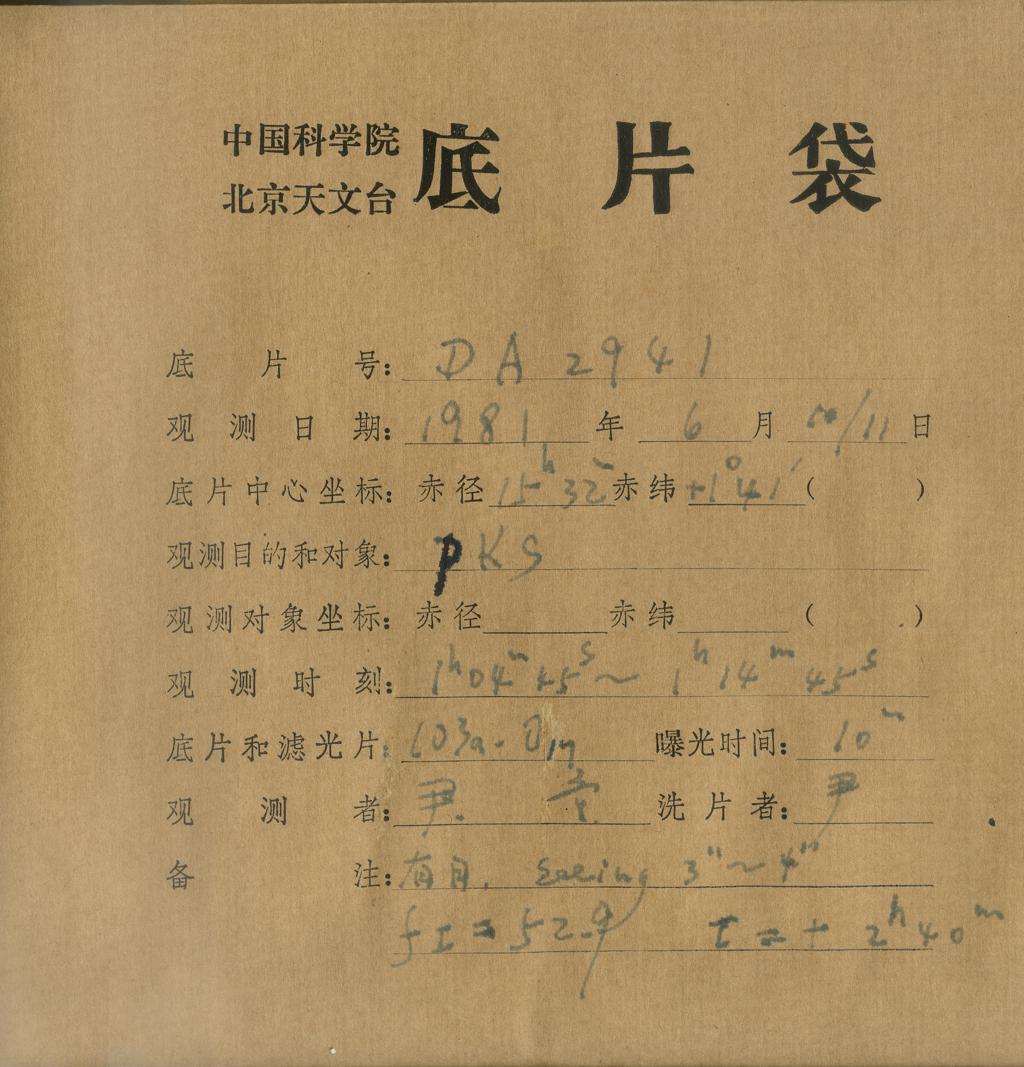 中国科学院
北京天文台 底片袋
底片号: DA 2941
观测日期: 1981 年 6 月 10/11 日
底片中心坐标: 赤径 15ʰ32ᵐ 赤纬 +1°41′ ( )
观测目的和对象: PKS
观测对象坐标: 赤径 赤纬 ( )
观测时刻: 1ʰ04ᵐ45ˢ~1ʰ14ᵐ45ˢ
底片和滤光片: 103a-O 曝光时间: 10ᵐ
观测者: 尹 洗片者: 尹
备注: 有月, Seeing 3"~4"
fI = 52.9 t = + 2ʰ40ᵐ